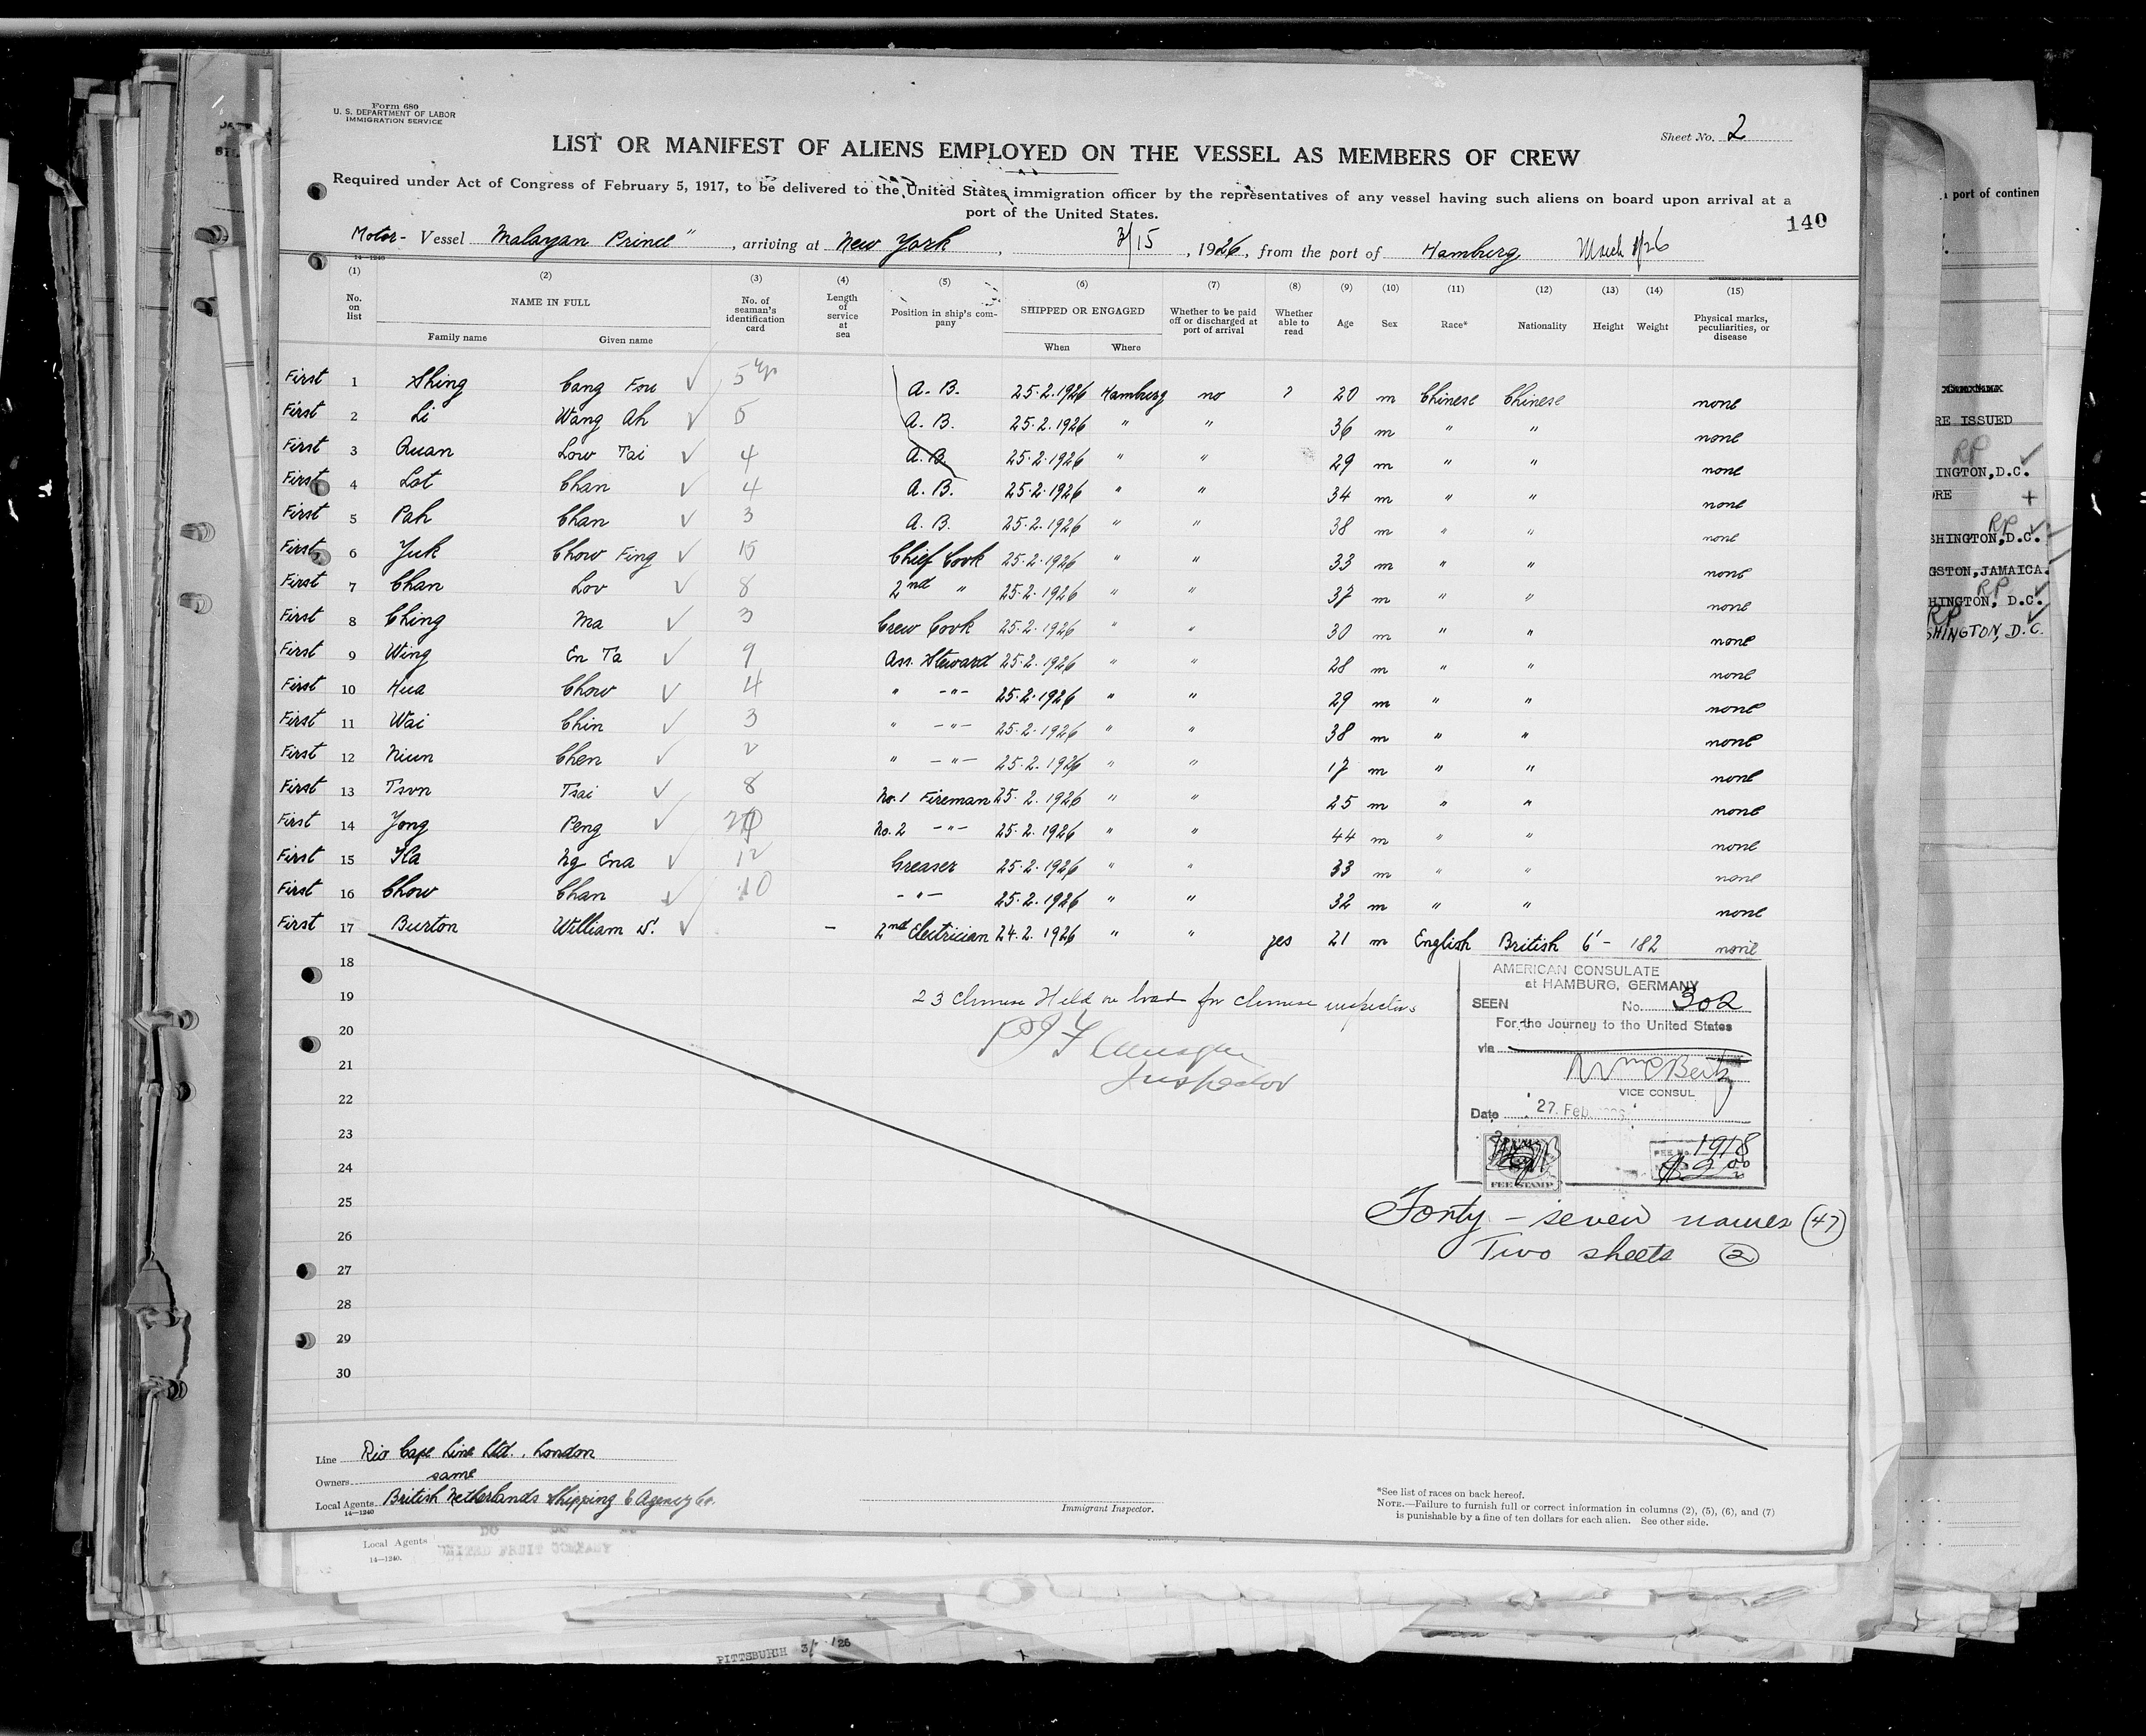 Form 680
U. S. DEPARTMENT OF LABOR
IMMIGRATION SERVICE
Sheet No. 2
LIST OR MANIFEST OF ALIENS EMPLOYED ON THE VESSEL AS MEMBERS OF CREW
Required under Act of Congress of February 5, 1917, to be delivered to the United States immigration officer by the representatives of any vessel having such aliens on board upon arrival at a
port of the United States.
140
Motor- Vessel Malayan Prince", arriving at New York, 3/15, 1926, from the port of Hamburg March /26
14—1240
(1) (2) (3) (4) (5) (6) (7) (8) (9) (10) (11) (12) (13) (14) (15)
No. on list NAME IN FULL Family name Given name No. of seaman's identification card Length of service at sea Position in ship's company SHIPPED OR ENGAGED When Where Whether to be paid off or discharged at port of arrival Whether able to read Age Sex Race* Nationality Height Weight Physical marks, peculiarities, or disease
First 1 Shing Cang Fou ✓ 5 A. B. 25.2.1926 Hamburg no ? 20 m Chinese Chinese none
First 2 Li Wang Ah ✓ 5 A. B. 25.2.1926 " " 36 m " " none
First 3 Quan Low Tai ✓ 4 A. B. 25.2.1926 " " 29 m " " none
First 4 Lot Chan ✓ 4 A. B. 25.2.1926 " " 34 m " " none
First 5 Pah Chan ✓ 3 A. B. 25.2.1926 " " 38 m " " none
First 6 Yuk Chow Fing ✓ 15 Chief Cook 25.2.1926 " " 33 m " " none
First 7 Chan Lov ✓ 8 2nd " 25.2.1926 " " 37 m " " none
First 8 Ching Ma ✓ 3 Crew Cook 25.2.1926 " " 30 m " " none
First 9 Wing En Ta ✓ 9 Ass. Steward 25.2.1926 " " 28 m " " none
First 10 Hua Chow ✓ 4 " -"- 25.2.1926 " " 29 m " " none
First 11 Wai Chin ✓ 3 " -"- 25.2.1926 " " 38 m " " none
First 12 Niun Chen ✓ 2 " -"- 25.2.1926 " " 17 m " " none
First 13 Tsvn Tsai ✓ 8 No. 1 Fireman 25.2.1926 " " 25 m " " none
First 14 Yong Peng ✓ No. 2 -"- 25.2.1926 " " 44 m " " none
First 15 Ha Ng Ena ✓ 12 Greaser 25.2.1926 " " 33 m " " none
First 16 Chow Chan ✓ 10 -"- 25.2.1926 " " 32 m " " none
First 17 Burton William S. ✓ - 2nd Electrician 24.2.1926 " " yes 21 m English British 6'- 182 none
18
19
20
21
22
23
24
25
26
27
28
29
30
23 Chinese Held on board for Chinese inspection
Inspector
AMERICAN CONSULATE
at HAMBURG, GERMANY
SEEN No. 302
For the Journey to the United States
via
VICE CONSUL
Date 27. Feb.
FEE STAMP
FEE No. 1918
$2.00
Forty-seven names (47)
Two sheets (2)
Line Rio Cape Line Ltd., London
Owners same
Local Agents British Netherlands Shipping & Agency Co.
14—1240
Immigrant Inspector.
*See list of races on back hereof.
NOTE.—Failure to furnish full or correct information in columns (2), (5), (6), and (7)
is punishable by a fine of ten dollars for each alien. See other side.
Local Agents UNITED FRUIT COMPANY
14—1240.
PITTSBURGH 3/ /26
a port of continen
RE ISSUED
RP ✓
INGTON, D.C.
ORE +
RP ✓
SHINGTON, D.C.
GSTON, JAMAICA.
RP ✓
HINGTON, D.C.
RP ✓
SHINGTON, D.C.